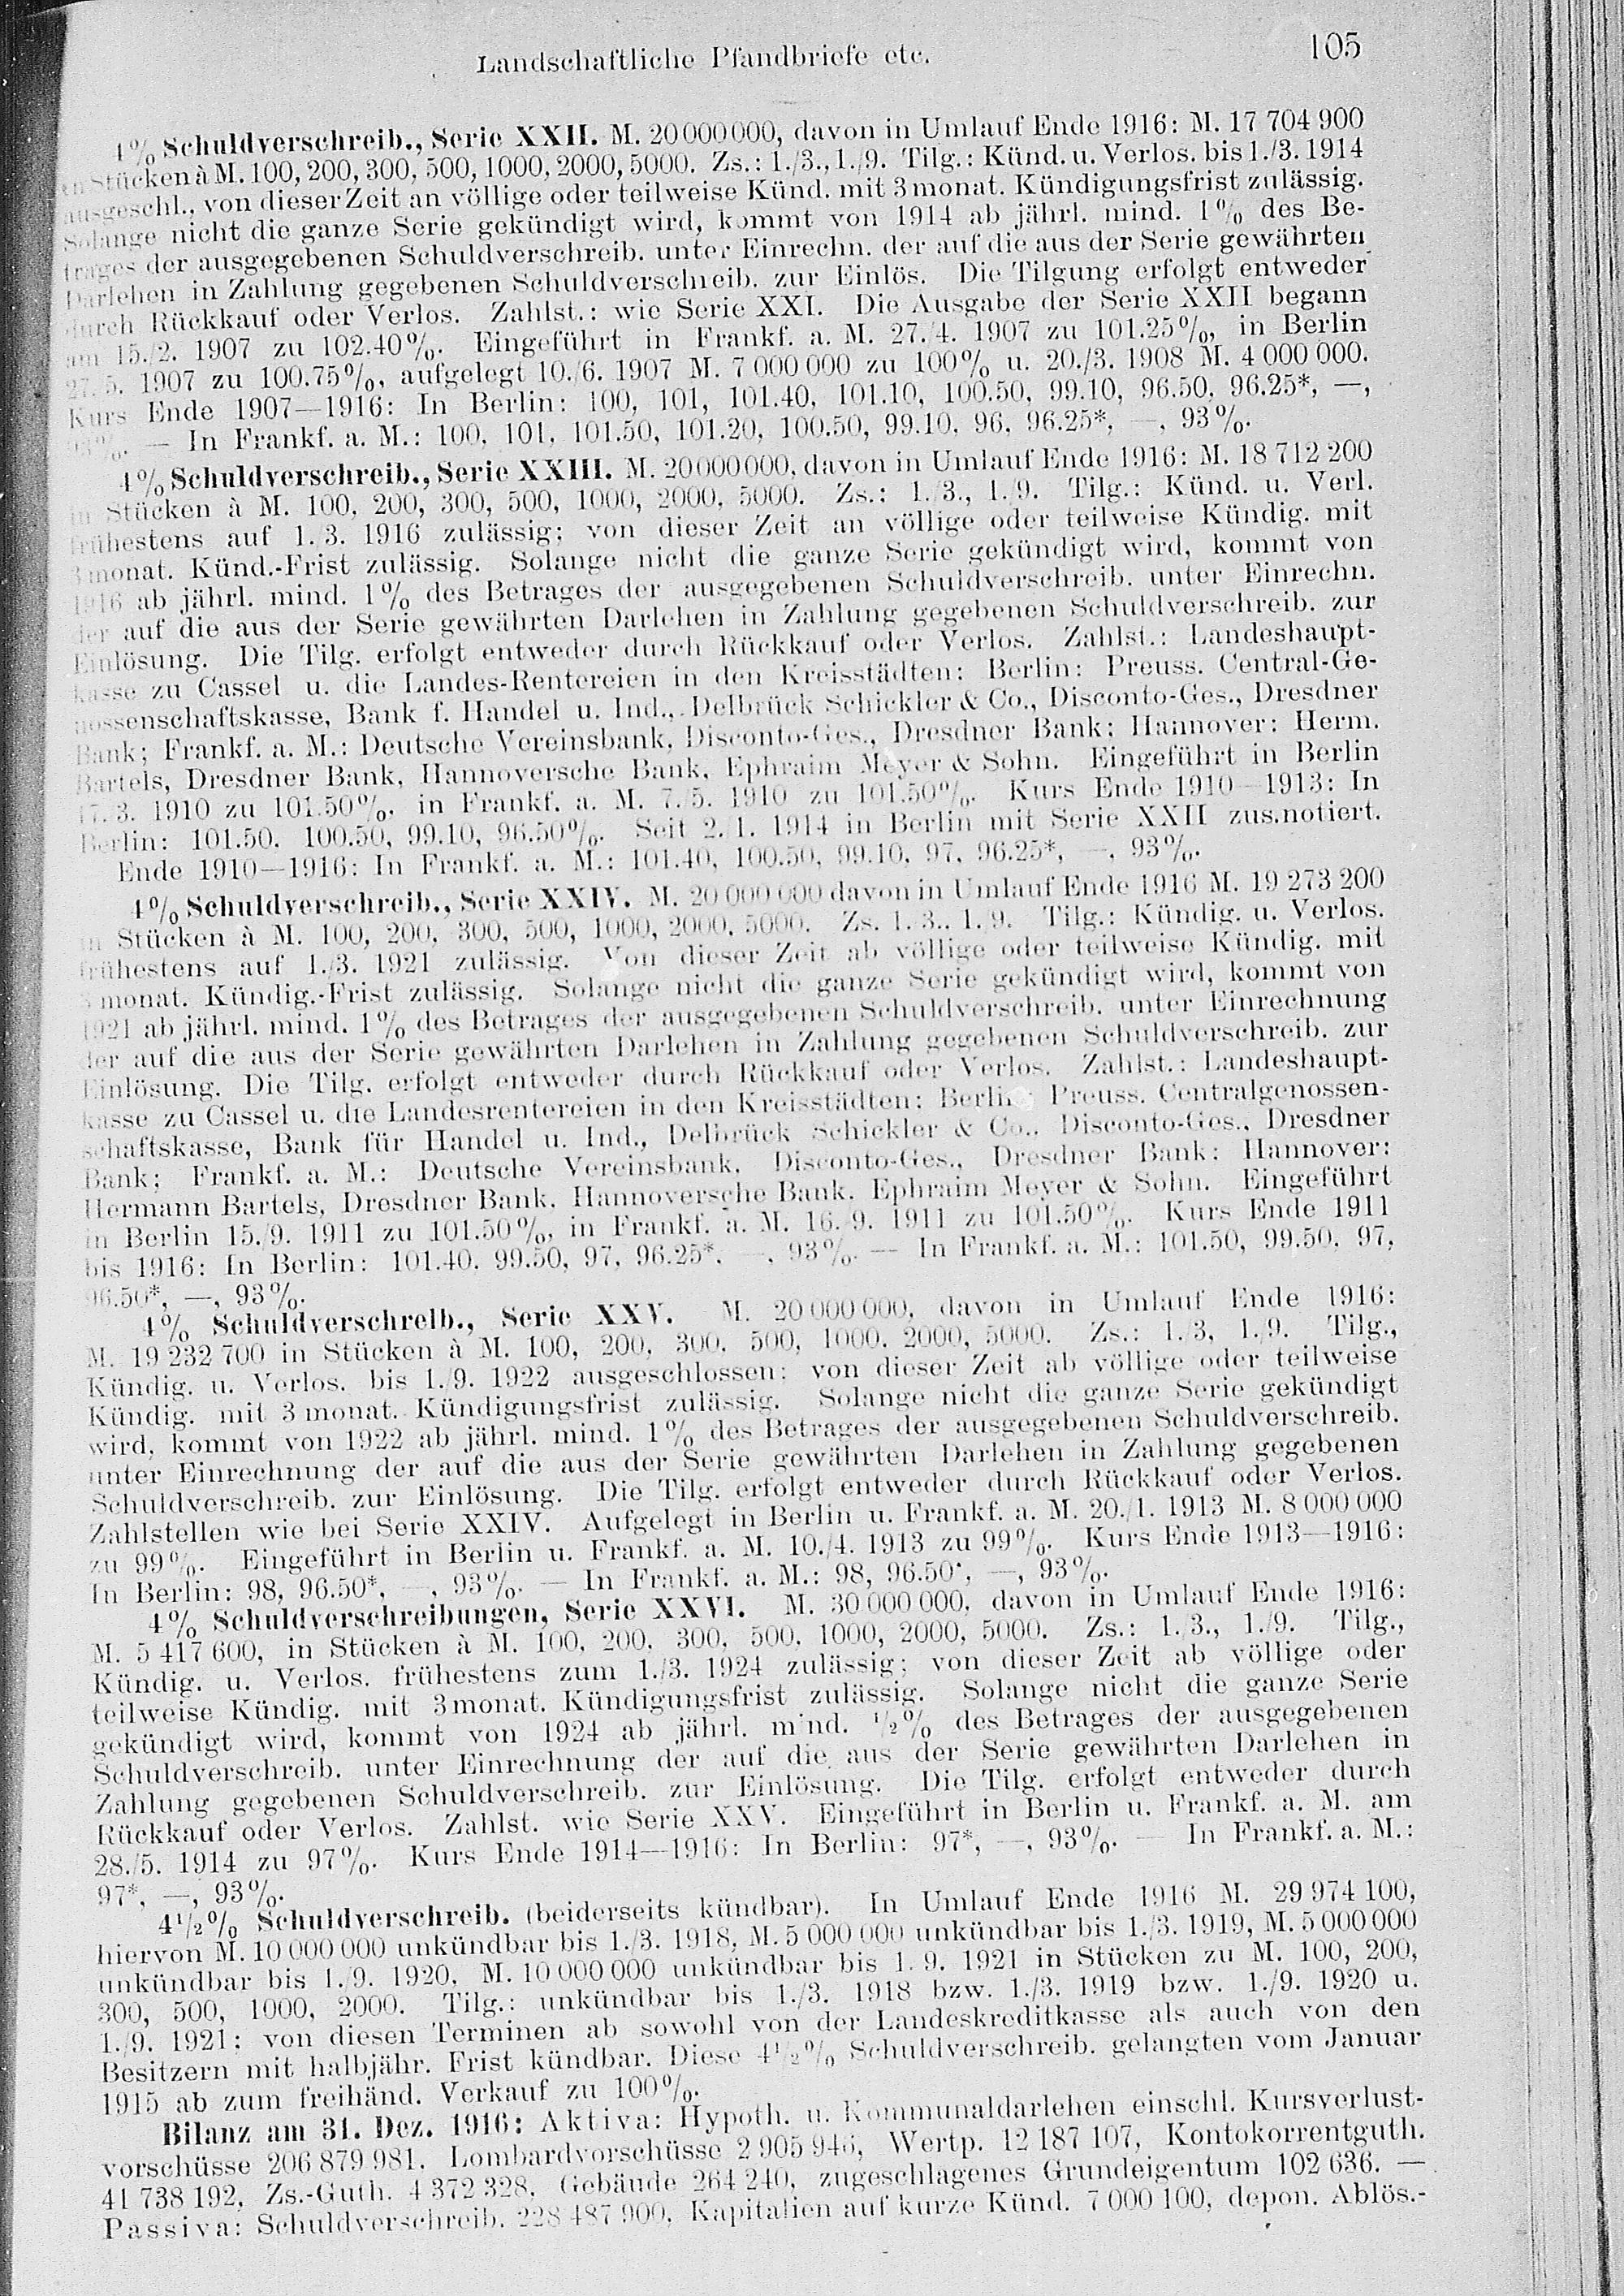 Landschaftliche Pfandbriefe etc. 105
4% Schuldverschreib., Serie XXII. M. 20000000, davon in Umlauf Ende 1916: M. 17 704 900
in Stücken à M. 100, 200, 300, 500, 1000, 2000, 5000. Zs.: 1./3., 1./9. Tilg.: Künd. u. Verlos. bis 1./3. 1914
ausgeschl., von dieser Zeit an völlige oder teilweise Künd. mit 3 monat. Kündigungsfrist zulässig.
Solange nicht die ganze Serie gekündigt wird, kommt von 1914 ab jährl. mind. 1% des Be-
trages der ausgegebenen Schuldverschreib. unter Einrechn. der auf die aus der Serie gewährten
Darlehen in Zahlung gegebenen Schuldverschreib. zur Einlös. Die Tilgung erfolgt entweder
durch Rückkauf oder Verlos. Zahlst.: wie Serie XXI. Die Ausgabe der Serie XXII begann
am 15./2. 1907 zu 102.40%. Eingeführt in Frankf. a. M. 27./4. 1907 zu 101.25%, in Berlin
27./5. 1907 zu 100.75%, aufgelegt 10./6. 1907 M. 7 000 000 zu 100% u. 20./3. 1908 M. 4 000 000.
Kurs Ende 1907—1916: In Berlin: 100, 101, 101.40, 101.10, 100.50, 99.10, 96.50, 96.25*, —,
93%. — In Frankf. a. M.: 100, 101, 101.50, 101.20, 100.50, 99.10, 96, 96.25*, —, 93%.
4% Schuldverschreib., Serie XXIII. M. 20000000, davon in Umlauf Ende 1916: M. 18 712 200
in Stücken à M. 100, 200, 300, 500, 1000, 2000, 5000. Zs.: 1./3., 1./9. Tilg.: Künd. u. Verl.
frühestens auf 1. 3. 1916 zulässig; von dieser Zeit an völlige oder teilweise Kündig. mit
3 monat. Künd.-Frist zulässig. Solange nicht die ganze Serie gekündigt wird, kommt von
1916 ab jährl. mind. 1% des Betrages der ausgegebenen Schuldverschreib. unter Einrechn.
der auf die aus der Serie gewährten Darlehen in Zahlung gegebenen Schuldverschreib. zur
Einlösung. Die Tilg. erfolgt entweder durch Rückkauf oder Verlos. Zahlst.: Landeshaupt-
kasse zu Cassel u. die Landes-Rentereien in den Kreisstädten; Berlin: Preuss. Central-Ge-
nossenschaftskasse, Bank f. Handel u. Ind., Delbrück Schickler & Co., Disconto-Ges., Dresdner
Bank; Frankf. a. M.: Deutsche Vereinsbank, Disconto-Ges., Dresdner Bank; Hannover: Herm.
Bartels, Dresdner Bank, Hannoversche Bank, Ephraim Meyer & Sohn. Eingeführt in Berlin
17./3. 1910 zu 101.50%, in Frankf. a. M. 7./5. 1910 zu 101.50%. Kurs Ende 1910—1913: In
Berlin: 101.50, 100.50, 99.10, 96.50%. Seit 2./1. 1914 in Berlin mit Serie XXII zus.notiert.
Ende 1910—1916: In Frankf. a. M.: 101.40, 100.50, 99.10, 97, 96.25*, —, 93%.
4% Schuldverschreib., Serie XXIV. M. 20 000 000 davon in Umlauf Ende 1916 M. 19 273 200
in Stücken à M. 100, 200, 300, 500, 1000, 2000, 5000. Zs. 1. 3., 1./9. Tilg.: Kündig. u. Verlos.
frühestens auf 1./3. 1921 zulässig. Von dieser Zeit ab völlige oder teilweise Kündig. mit
3 monat. Kündig.-Frist zulässig. Solange nicht die ganze Serie gekündigt wird, kommt von
1921 ab jährl. mind. 1% des Betrages der ausgegebenen Schuldverschreib. unter Einrechnung
der auf die aus der Serie gewährten Darlehen in Zahlung gegebenen Schuldverschreib. zur
Einlösung. Die Tilg. erfolgt entweder durch Rückkauf oder Verlos. Zahlst.: Landeshaupt-
kasse zu Cassel u. die Landesrentereien in den Kreisstädten; Berlin: Preuss. Centralgenossen-
schaftskasse, Bank für Handel u. Ind., Delbrück Schickler & Co., Disconto-Ges., Dresdner
Bank; Frankf. a. M.: Deutsche Vereinsbank, Disconto-Ges., Dresdner Bank; Hannover:
Hermann Bartels, Dresdner Bank, Hannoversche Bank, Ephraim Meyer & Sohn. Eingeführt
in Berlin 15./9. 1911 zu 101.50%, in Frankf. a. M. 16./9. 1911 zu 101.50%. Kurs Ende 1911
bis 1916: In Berlin: 101.40, 99.50, 97, 96.25*, —, 93%. — In Frankf. a. M.: 101.50, 99.50, 97,
96.50*, —, 93%.
4% Schuldverschreib., Serie XXV. M. 20 000 000, davon in Umlauf Ende 1916:
M. 19 232 700 in Stücken à M. 100, 200, 300, 500, 1000, 2000, 5000. Zs.: 1./3, 1./9. Tilg.,
Kündig. u. Verlos. bis 1./9. 1922 ausgeschlossen; von dieser Zeit ab völlige oder teilweise
Kündig. mit 3 monat. Kündigungsfrist zulässig. Solange nicht die ganze Serie gekündigt
wird, kommt von 1922 ab jährl. mind. 1% des Betrages der ausgegebenen Schuldverschreib.
unter Einrechnung der auf die aus der Serie gewährten Darlehen in Zahlung gegebenen
Schuldverschreib. zur Einlösung. Die Tilg. erfolgt entweder durch Rückkauf oder Verlos.
Zahlstellen wie bei Serie XXIV. Aufgelegt in Berlin u. Frankf. a. M. 20./1. 1913 M. 8 000 000
zu 99%. Eingeführt in Berlin u. Frankf. a. M. 10./4. 1913 zu 99%. Kurs Ende 1913—1916:
In Berlin: 98, 96.50*, —, 93%. — In Frankf. a. M.: 98, 96.50*, —, 93%.
4% Schuldverschreibungen, Serie XXVI. M. 30 000 000, davon in Umlauf Ende 1916:
M. 5 417 600, in Stücken à M. 100, 200, 300, 500, 1000, 2000, 5000. Zs.: 1./3., 1./9. Tilg.,
Kündig. u. Verlos. frühestens zum 1./3. 1924 zulässig; von dieser Zeit ab völlige oder
teilweise Kündig. mit 3 monat. Kündigungsfrist zulässig. Solange nicht die ganze Serie
gekündigt wird, kommt von 1924 ab jährl. mind. ½% des Betrages der ausgegebenen
Schuldverschreib. unter Einrechnung der auf die aus der Serie gewährten Darlehen in
Zahlung gegebenen Schuldverschreib. zur Einlösung. Die Tilg. erfolgt entweder durch
Rückkauf oder Verlos. Zahlst. wie Serie XXV. Eingeführt in Berlin u. Frankf. a. M. am
28./5. 1914 zu 97%. Kurs Ende 1914—1916: In Berlin: 97*, —, 93%. — In Frankf. a. M.:
97*, —, 93%.
4½% Schuldverschreib. (beiderseits kündbar). In Umlauf Ende 1916 M. 29 974 100,
hiervon M. 10 000 000 unkündbar bis 1./3. 1918, M. 5 000 000 unkündbar bis 1./3. 1919, M. 5 000 000
unkündbar bis 1./9. 1920, M. 10 000 000 unkündbar bis 1. 9. 1921 in Stücken zu M. 100, 200,
300, 500, 1000, 2000. Tilg.: unkündbar bis 1./3. 1918 bzw. 1./3. 1919 bzw. 1./9. 1920 u.
1./9. 1921; von diesen Terminen ab sowohl von der Landeskreditkasse als auch von den
Besitzern mit halbjähr. Frist kündbar. Diese 4½% Schuldverschreib. gelangten vom Januar
1915 ab zum freihänd. Verkauf zu 100%.
Bilanz am 31. Dez. 1916: Aktiva: Hypoth. u. Kommunaldarlehen einschl. Kursverlust-
vorschüsse 206 879 981, Lombardvorschüsse 2 905 946, Wertp. 12 187 107, Kontokorrentguth.
41 738 192, Zs.-Guth. 4 372 328, Gebäude 264 240, zugeschlagenes Grundeigentum 102 636. —
Passiva: Schuldverschreib. 228 487 900, Kapitalien auf kurze Künd. 7 000 100, depon. Ablös.-